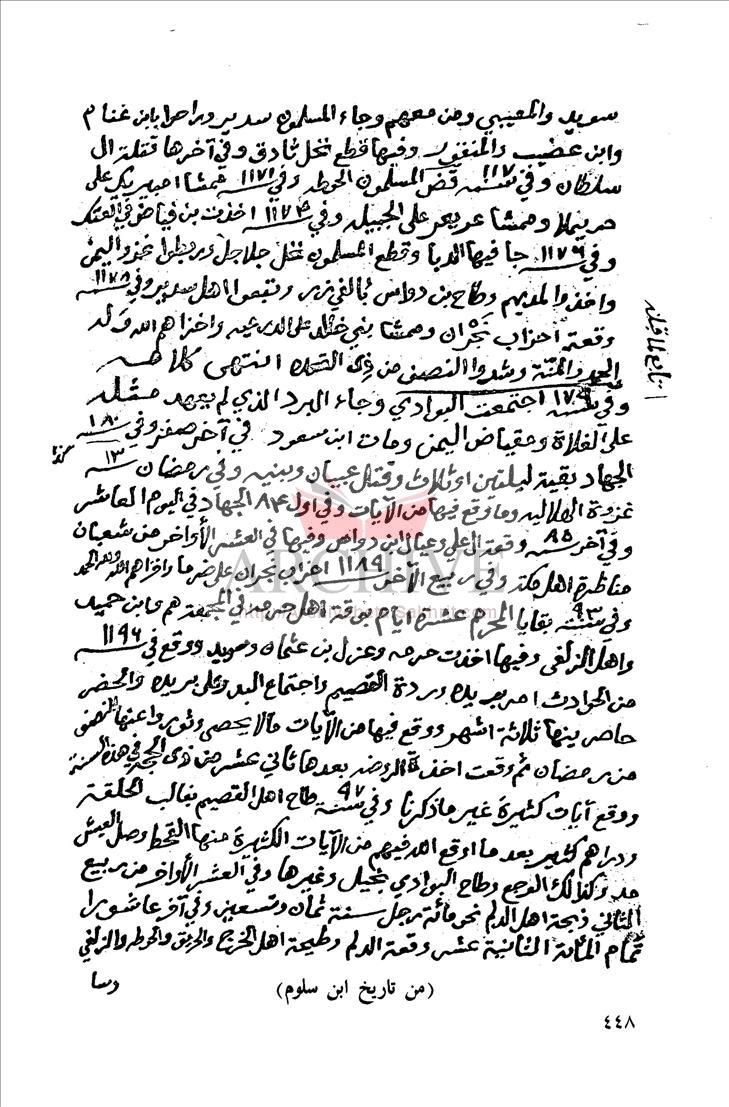 سويد والمعيبي ومن معهم وجاء المسلمون سدير وراحوا بابن غنام
وابن عضيب والمنقور وفيها قطع نخل ثادق وفي آخرها قتلة ال
سلطان وفي سنة ١١٧٠ قض المسلمون الحوطه وفي ١١٧١ ممشا امبيريك على
حريملا وممشا عريعر على الجبيله وفي ١١٧٣ اخذت بن فياض في العتك
وفي ١١٧٦ جا فيها الدبا وقطع المسلمون نخل جلاجل وربطوا غزو اليمن
واخذوا المديهم وطاح بن دواس بألفي زر ونقصوا اهل سدير وفي سنة ١١٧٨
وقعة احزاب نجران وممشا بني خالد على الدرعيه واخزاهم الله وله
الحمد والمنة وشدوا النصف من ذي القعدة انتهى كلامه
وفي سنة ١١٧٩ اجتمعت البوادي وجاء البرد الذي لم يعهد مثله
على الفلاة ومقياض اليمن ومات ابن سعود في آخر صفر وفي سنة ١١٨٠
الجهاد بقية ليلتين او ثلاث وقتل عبيان وبنيه وفي رمضان سنة ١٣ كذا
غزوة الهلاليه وما وقع فيها من الآيات وفي اول ٨٤ الجهاد في اليوم العاشر
وفي آخر سنة ٨٥ وقعة ال علي وعيال ابن دواس وفيها في العشر الأواخر من شعبان
مناظرة اهل مكة وفي ربيع الآخر ١١٨٩ احزاب نجران على ضرما واخزاهم الله وله الحمد
وفي سنة ٩٣ بقايا المحرم عشرة ايام بوقة اهل حرمه في المجمعة هم وابن حميد
واهل الزلفي وفيها اخذت حرمه وعزل بن عثمان وسويد ووقع في سنة ١١٩٦
من الحوادث امر بريده وردة القصيم واجتماع البدو على بريده والحضر
حاصرينها ثلاثة اشهر ووقع فيها من الآيات ما لا يحصى وثوروا عنها النصف
من رمضان ثم وقعت اخذة الروضه بعدها ثاني عشر من ذي الحجة في هذه السنة
ووقع آيات كثيرة غير ما ذكرنا وفي سنة ٩٧ طاح اهل القصيم بغالب الحلقة
ودراهم كثير بعد ما اوقع الله فيهم من الآيات الكثيرة منها القحط وصل العيش
حد وكذالك الوجع وطاح البوادي بخيل وغيرها وفي العشر الأواخر من ربيع
الثاني ذبحة اهل الدلم نحو مائة رجل سنة ثمان وتسعين وفي آخر عاشورا
تمام المائة الثانية عشر وقعة الدلم وطيحة اهل الخرج والحريق والحوطه والزلفي
وسا
تابع لما قبله
(من تاريخ ابن سلوم)
٤٤٨
ARCHIVE